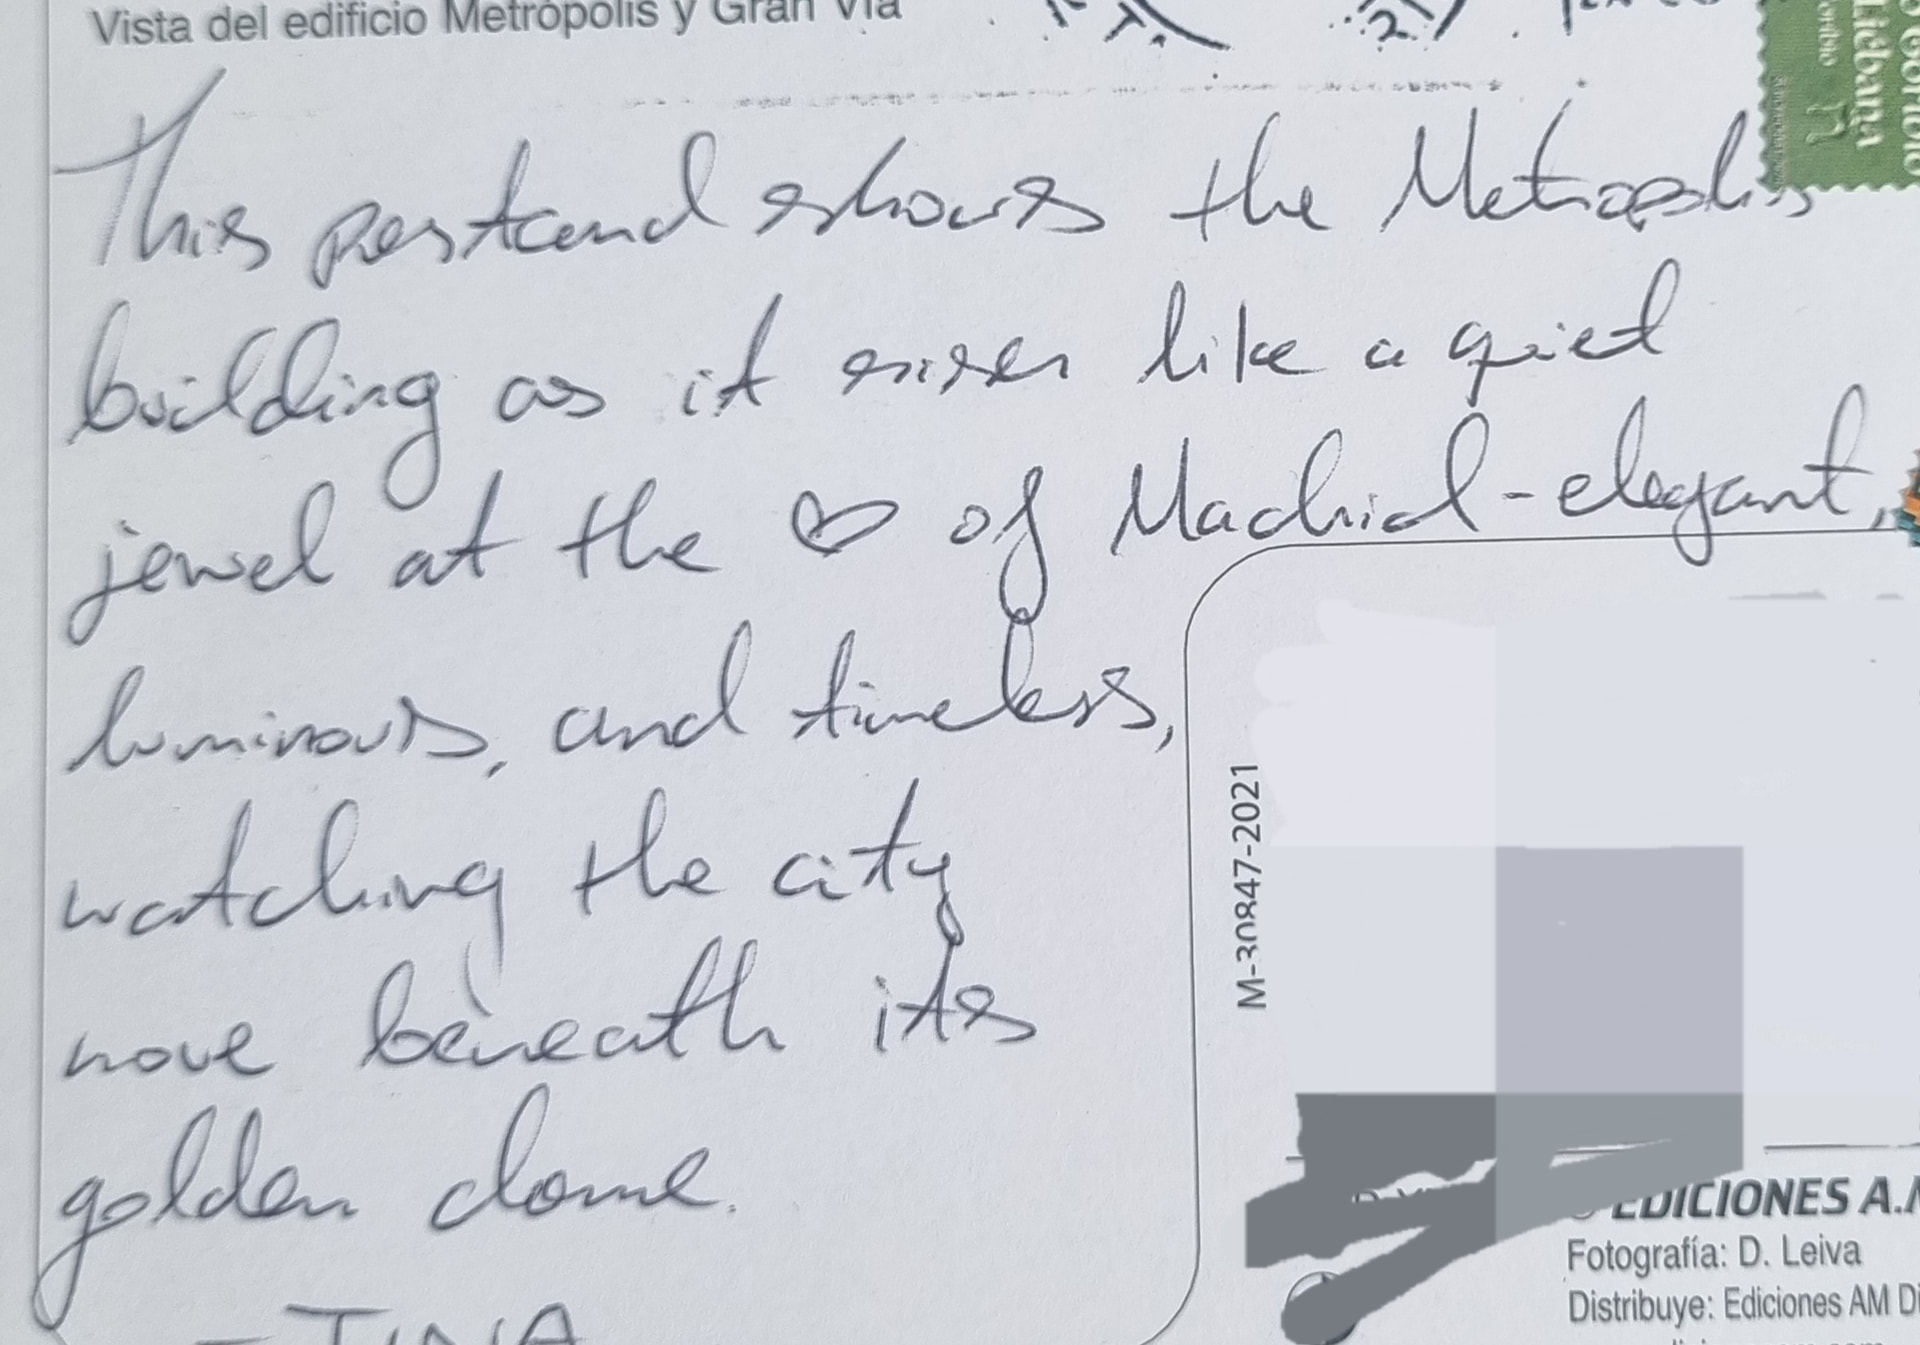 Vista del edificio Metrópolis y Gran Vía
This postcard shows the Metropolis
building as it rises like a quiet
jewel at the ♡ of Madrid - elegant,
luminous, and timeless,
watching the city
move beneath its
golden dome.
- TINA
Liébana
M-30847-2021
EDICIONES A.M
Fotografía: D. Leiva
Distribuye: Ediciones AM Di